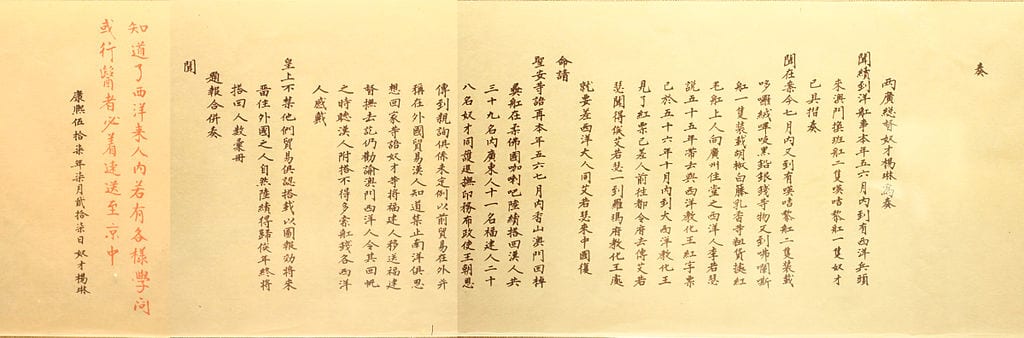 奏
兩廣總督奴才楊琳為奏
聞續到洋舡事本年五六月內到有西洋兵頭
來澳門換班舡二隻𠸄咭唎舡一隻奴才
已具摺奏
聞在案今七月內又到有𠸄咭唎舡二隻裝載
哆囉絨嗶吱黑鉛銀錢等物又到咈囒哂
舡一隻裝載胡椒白藤乳香等粗貨據紅
毛舡上人向廣州住堂之西洋人李若瑟
說五十五年帶去與西洋教化王紅字票
已於五十六年十月內到大西洋教化王
見了紅票已差人前往都令府去傳艾若
瑟聞得俟艾若瑟一到羅瑪府教化王處
就要差西洋大人同艾若瑟來中國復
命請
聖安等語再本年五六七月內香山澳門回棹
夷舡在柔佛國咖喇吧陸續搭回漢人共
三十九名內廣東人十一名福建人二十
八名奴才同護巡撫印務布政使王朝恩
傳到親詢俱係未定例以前貿易在外并
稱在外國貿易漢人知道禁止南洋俱思
想回家等語奴才等將福建人移送福建
督撫去訖仍勸諭澳門西洋人令其回帆
之時聽漢人附搭不得多索舡錢各西洋
人感戴
皇上不禁他們貿易俱認搭載以圖報効將來
畱住外國之人自然陸續得歸俟年終將
搭回人數彙冊
題報合併奏
聞
知道了西洋來人內若有各樣學問
或行醫者必着速送至京中
康熙伍拾柒年柒月貳拾柒日奴才楊琳